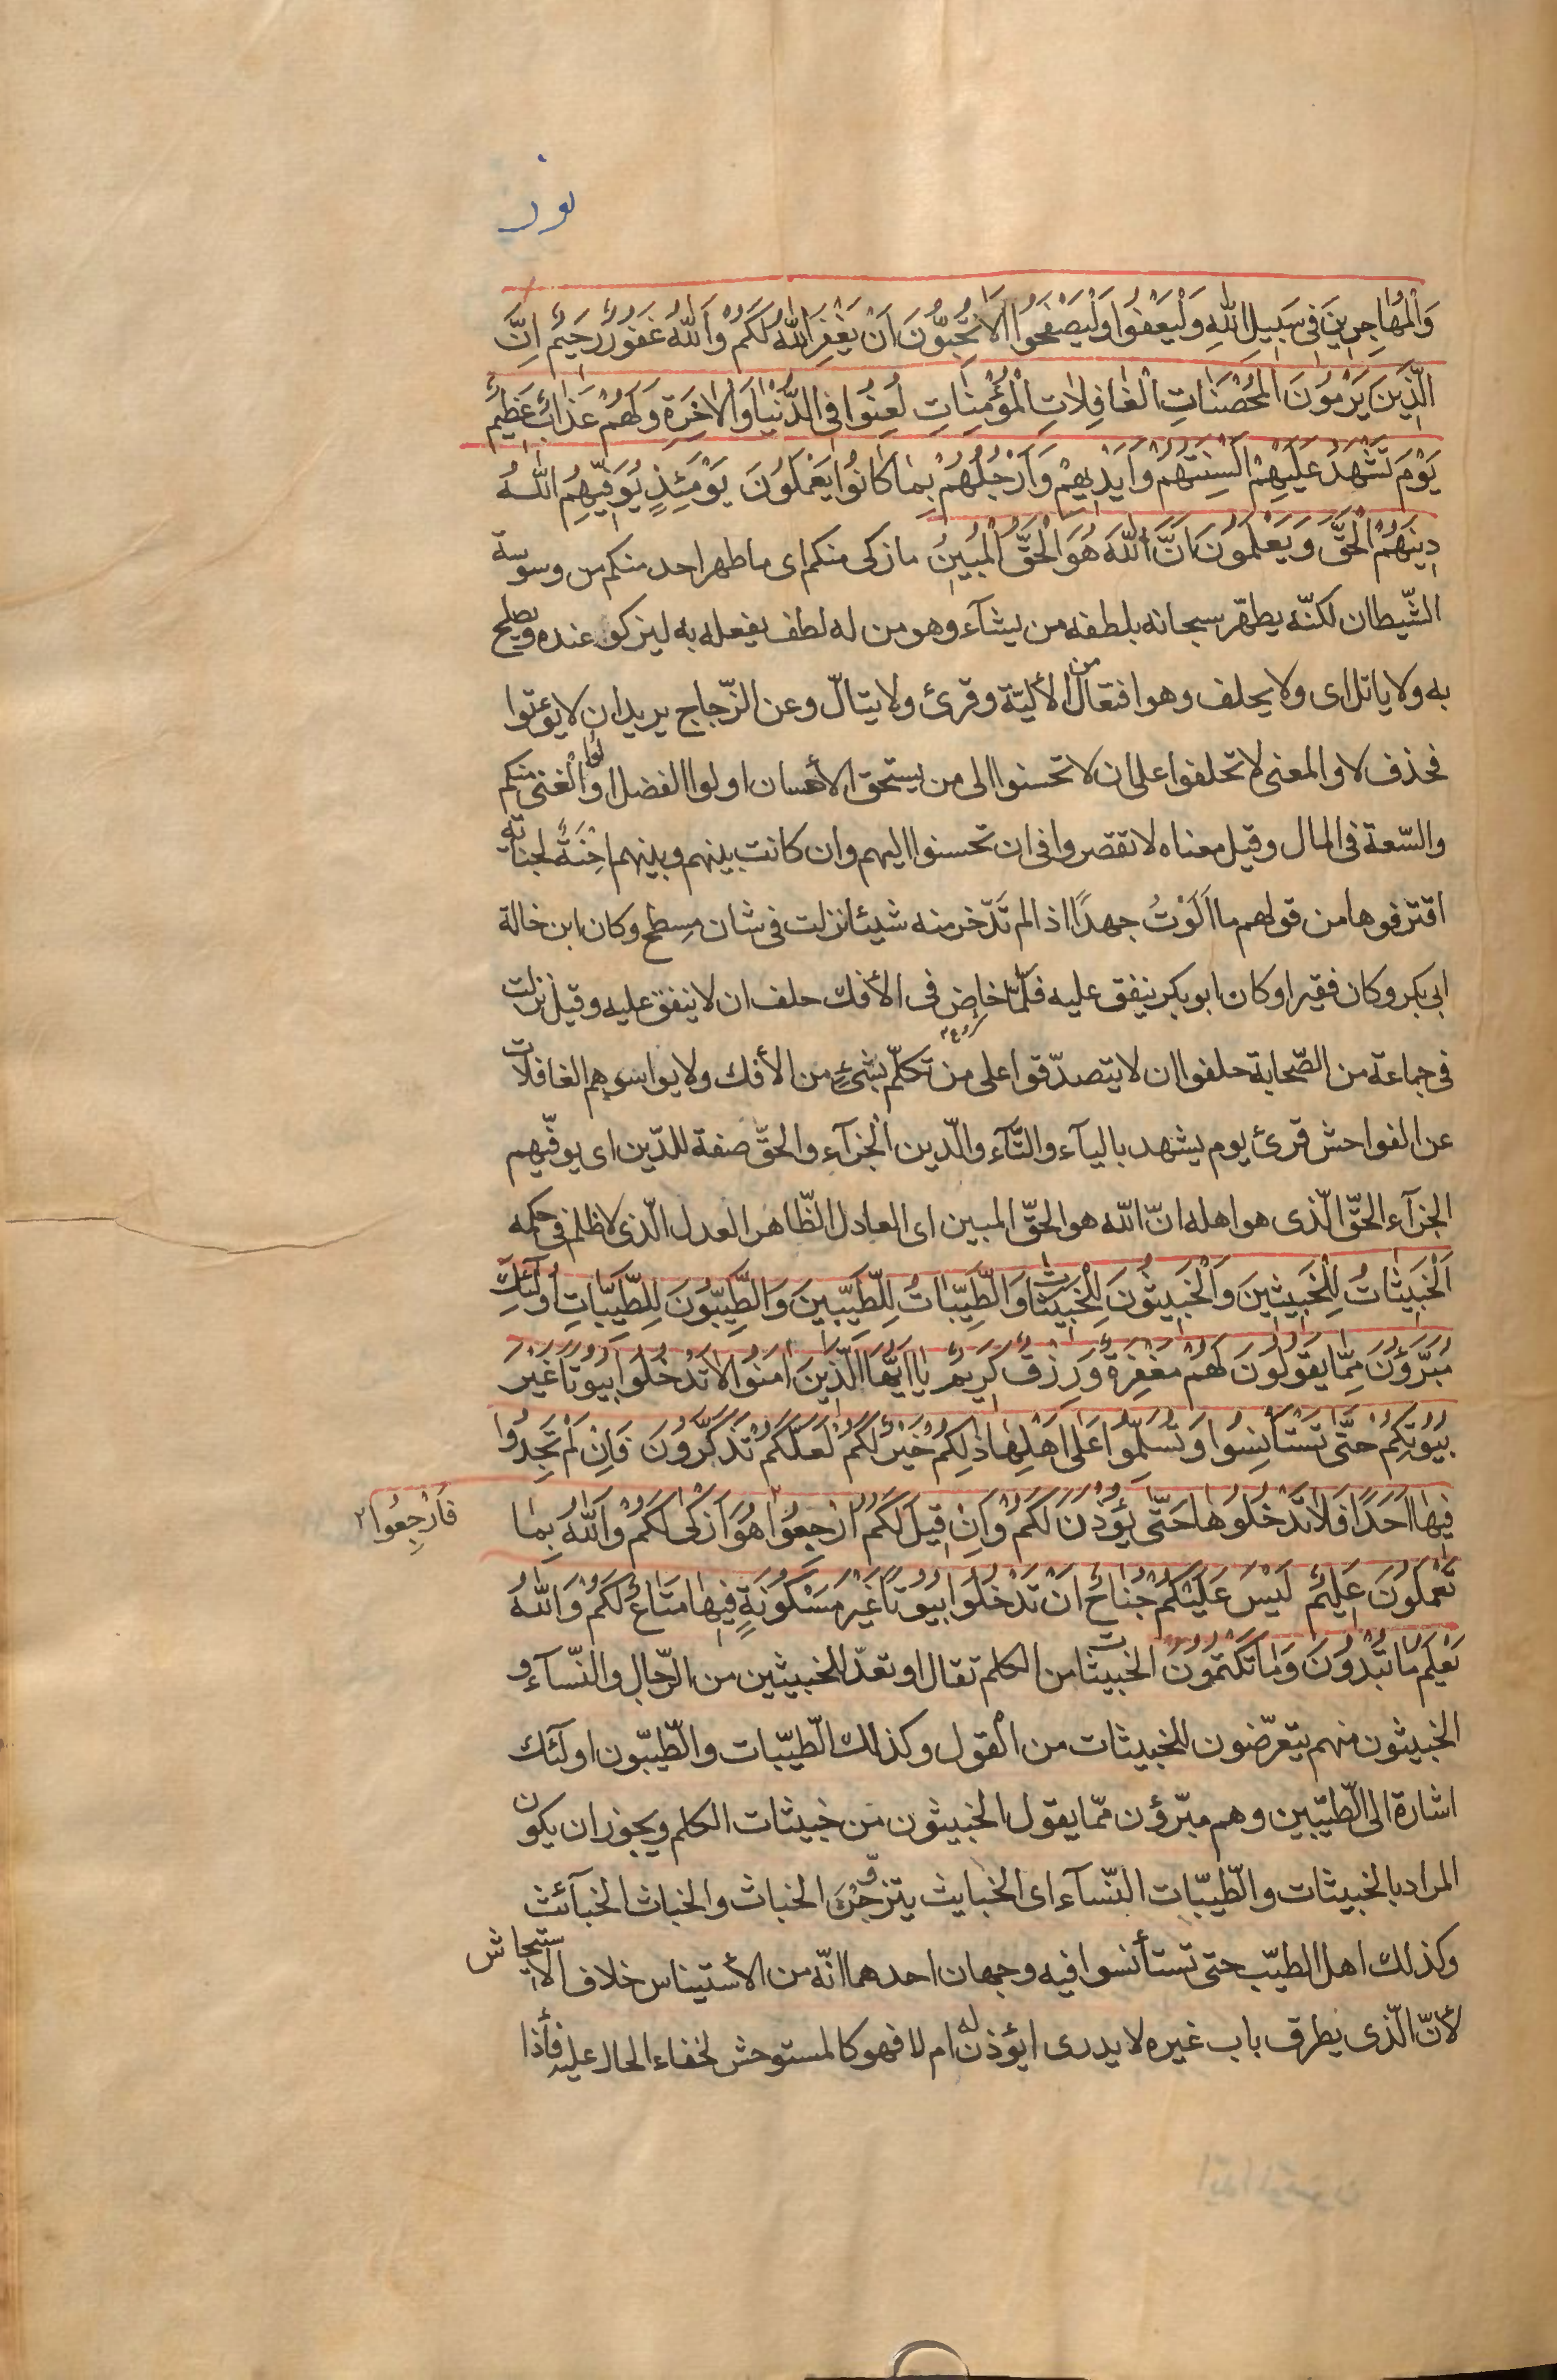 نور
وَالْمُهاجِرينَ في سَبيلِ اللّهِ وَلْيَعْفُوا وَلْيَصْفَحُوا اَلا تُحِبُّونَ اَنْ يَغْفِرَ اللّهُ لَكُمْ وَاللّهُ غَفُورٌ رَحيمٌ اِنَّ
الَّذينَ يَرْمُونَ الْمُحْصَناتِ الْغافِلاتِ الْمُؤْمِناتِ لُعِنُوا فِي الدُّنْيا وَالْاخِرَةِ وَلَهُمْ عَذابٌ عَظيمٌ
يَوْمَ تَشْهَدُ عَلَيْهِمْ اَلْسِنَتُهُمْ وَاَيْديهِمْ وَاَرْجُلُهُمْ بِما كانُوا يَعْمَلُونَ يَوْمَئِذٍ يُوَفّيهِمُ اللّهُ
دينَهُمُ الْحَقَّ وَيَعْلَمُونَ اَنَّ اللّهَ هُوَ الْحَقُّ الْمُبينُ ما زكى منكم اى ما طهر احد منكم من وسوسة
الشّيطان لكنّه يطهّر سبحانه بلطفه من يشآء وهو من له لطف يفعله به ليزكو عنده ويصلح
به ولا ياتل اى ولا يحلف وهو افتعال من الأليّة وقرئ ولا يتالّ وعن الزّجاج يريد ان لا يؤتوا
فحذف لا والمعنى لا تحلفوا على ان لا تحسنوا الى من يستحق الأحسان اولوا الفضل اولوا الغنى منكم
والسّعة فى المال وقيل معناه لا تقصروا فى ان تحسنوا اليهم وان كانت بينهم وبينهم اِحْنَةٌ لجناية
اقترفوها من قولهم ما اَلَوْتُ جهدًا اذا لم تَدّخر منه شيئا نزلت فى شان مِسطح وكان ابن خالة
ابى بكر وكان فقيرا وكان ابو بكر ينفق عليه فلمّا خاض فى الأفك حلف ان لا ينفق عليه وقيل نزلت
فى جماعة من الصّحابة حلفوا ان لا يتصدّقوا على من تكلّم بشئٍ من الأفك ولا يواسوهم الغافلات
عن الفواحش قرئ يوم يشهد باليآء والتّآء والدّين الجزآء والحقّ صفة للدّين اى يوفّيهم
الجزآء الحقّ الّذى هو اهله انّ اللّه هو الحقّ المبين اى العادل الظّاهر العدل الّذى لا ظلم فى حكمه
اَلْخَبيثاتُ لِلْخَبيثينَ وَالْخَبيثُونَ لِلْخَبيثاتِ وَالطَّيِّباتُ لِلطَّيِّبينَ وَالطَّيِّبُونَ لِلطَّيِّباتِ اُولَئِكَ
مُبَرَّؤُنَ مِمّا يَقُولُونَ لَهُمْ مَغْفِرَةٌ وَرِزْقٌ كَريمٌ يا اَيُّهَا الَّذينَ امَنُوا لا تَدْخُلُوا بُيُوتًا غَيْرَ
بُيُوتِكُمْ حَتّى تَسْتَأْنِسُوا وَتُسَلِّمُوا عَلى اَهْلِها ذلِكُمْ خَيْرٌ لَكُمْ لَعَلَّكُمْ تَذَكَّرُونَ فَاِنْ لَمْ تَجِدُوا
فيها اَحَدًا فَلا تَدْخُلُوها حَتّى يُؤْذَنَ لَكُمْ وَاِنْ قيلَ لَكُمُ ارْجِعُوا هُوَ اَزْكى لَكُمْ وَاللّهُ بِما
فَارْجِعُوا ٢
تَعْمَلُونَ عَليمٌ لَيْسَ عَلَيْكُمْ جُناحٌ اَنْ تَدْخُلُوا بُيُوتًا غَيْرَ مَسْكُونَةٍ فيها مَتاعٌ لَكُمْ وَاللّهُ
يَعْلَمُ ما تُبْدُونَ وَما تَكْتُمُونَ الخبيثات من الكلم تقال او تعدّ للخبيثين من الرّجال والنّسآء و
الخبيثون منهم يتعرّضون للخبيثات من القول وكذلك الطّيّبات والطّيّبون اولئك
اشارة الى الطّيّبين وهم مبرّؤن ممّا يقول الخبيثون من خبيثات الكلم ويجوز ان يكون
المراد بالخبيثات والطّيّبات النّسآء اى الخبايث يتزوّجْنَ الخباث والخباث الخبآئث
وكذلك اهل الطيّب حتى تستأنسوا فيه وجهان احدهما انّه من الأستيناس خلاف الاستيحاش
لأنّ الّذى يطرق باب غيره لا يدرى ايؤذن له ام لا فهو كالمستوحش لخفاء الحال عليه فأذا